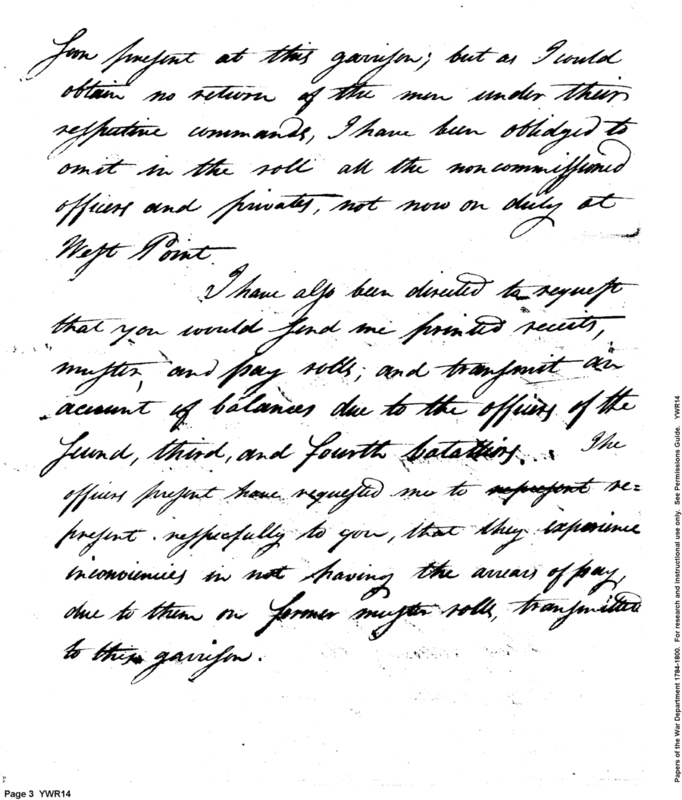 present at this garrison; but as I could
obtain no return of the men under their
respective commands, I have been obledged to
omit in the roll all the noncommissioned
officers and privates, not now on duty at
West Point.
I have also been directed to request
that you would send me printed receits,
muster, and pay rolls; and transmit an
account of balances due to the officers of the
second, third, and fourth batallions. The
officers present have requested me to represent re=
present respecfully to you, that they experience
inconviencies in not having the arrears of pay,
due to them on former muster rolls, transmitted
to this garrison.
Page 3 YWR14
Papers of the War Department 1784-1800. For research and instructional use only. See Permissions Guide. YWR14